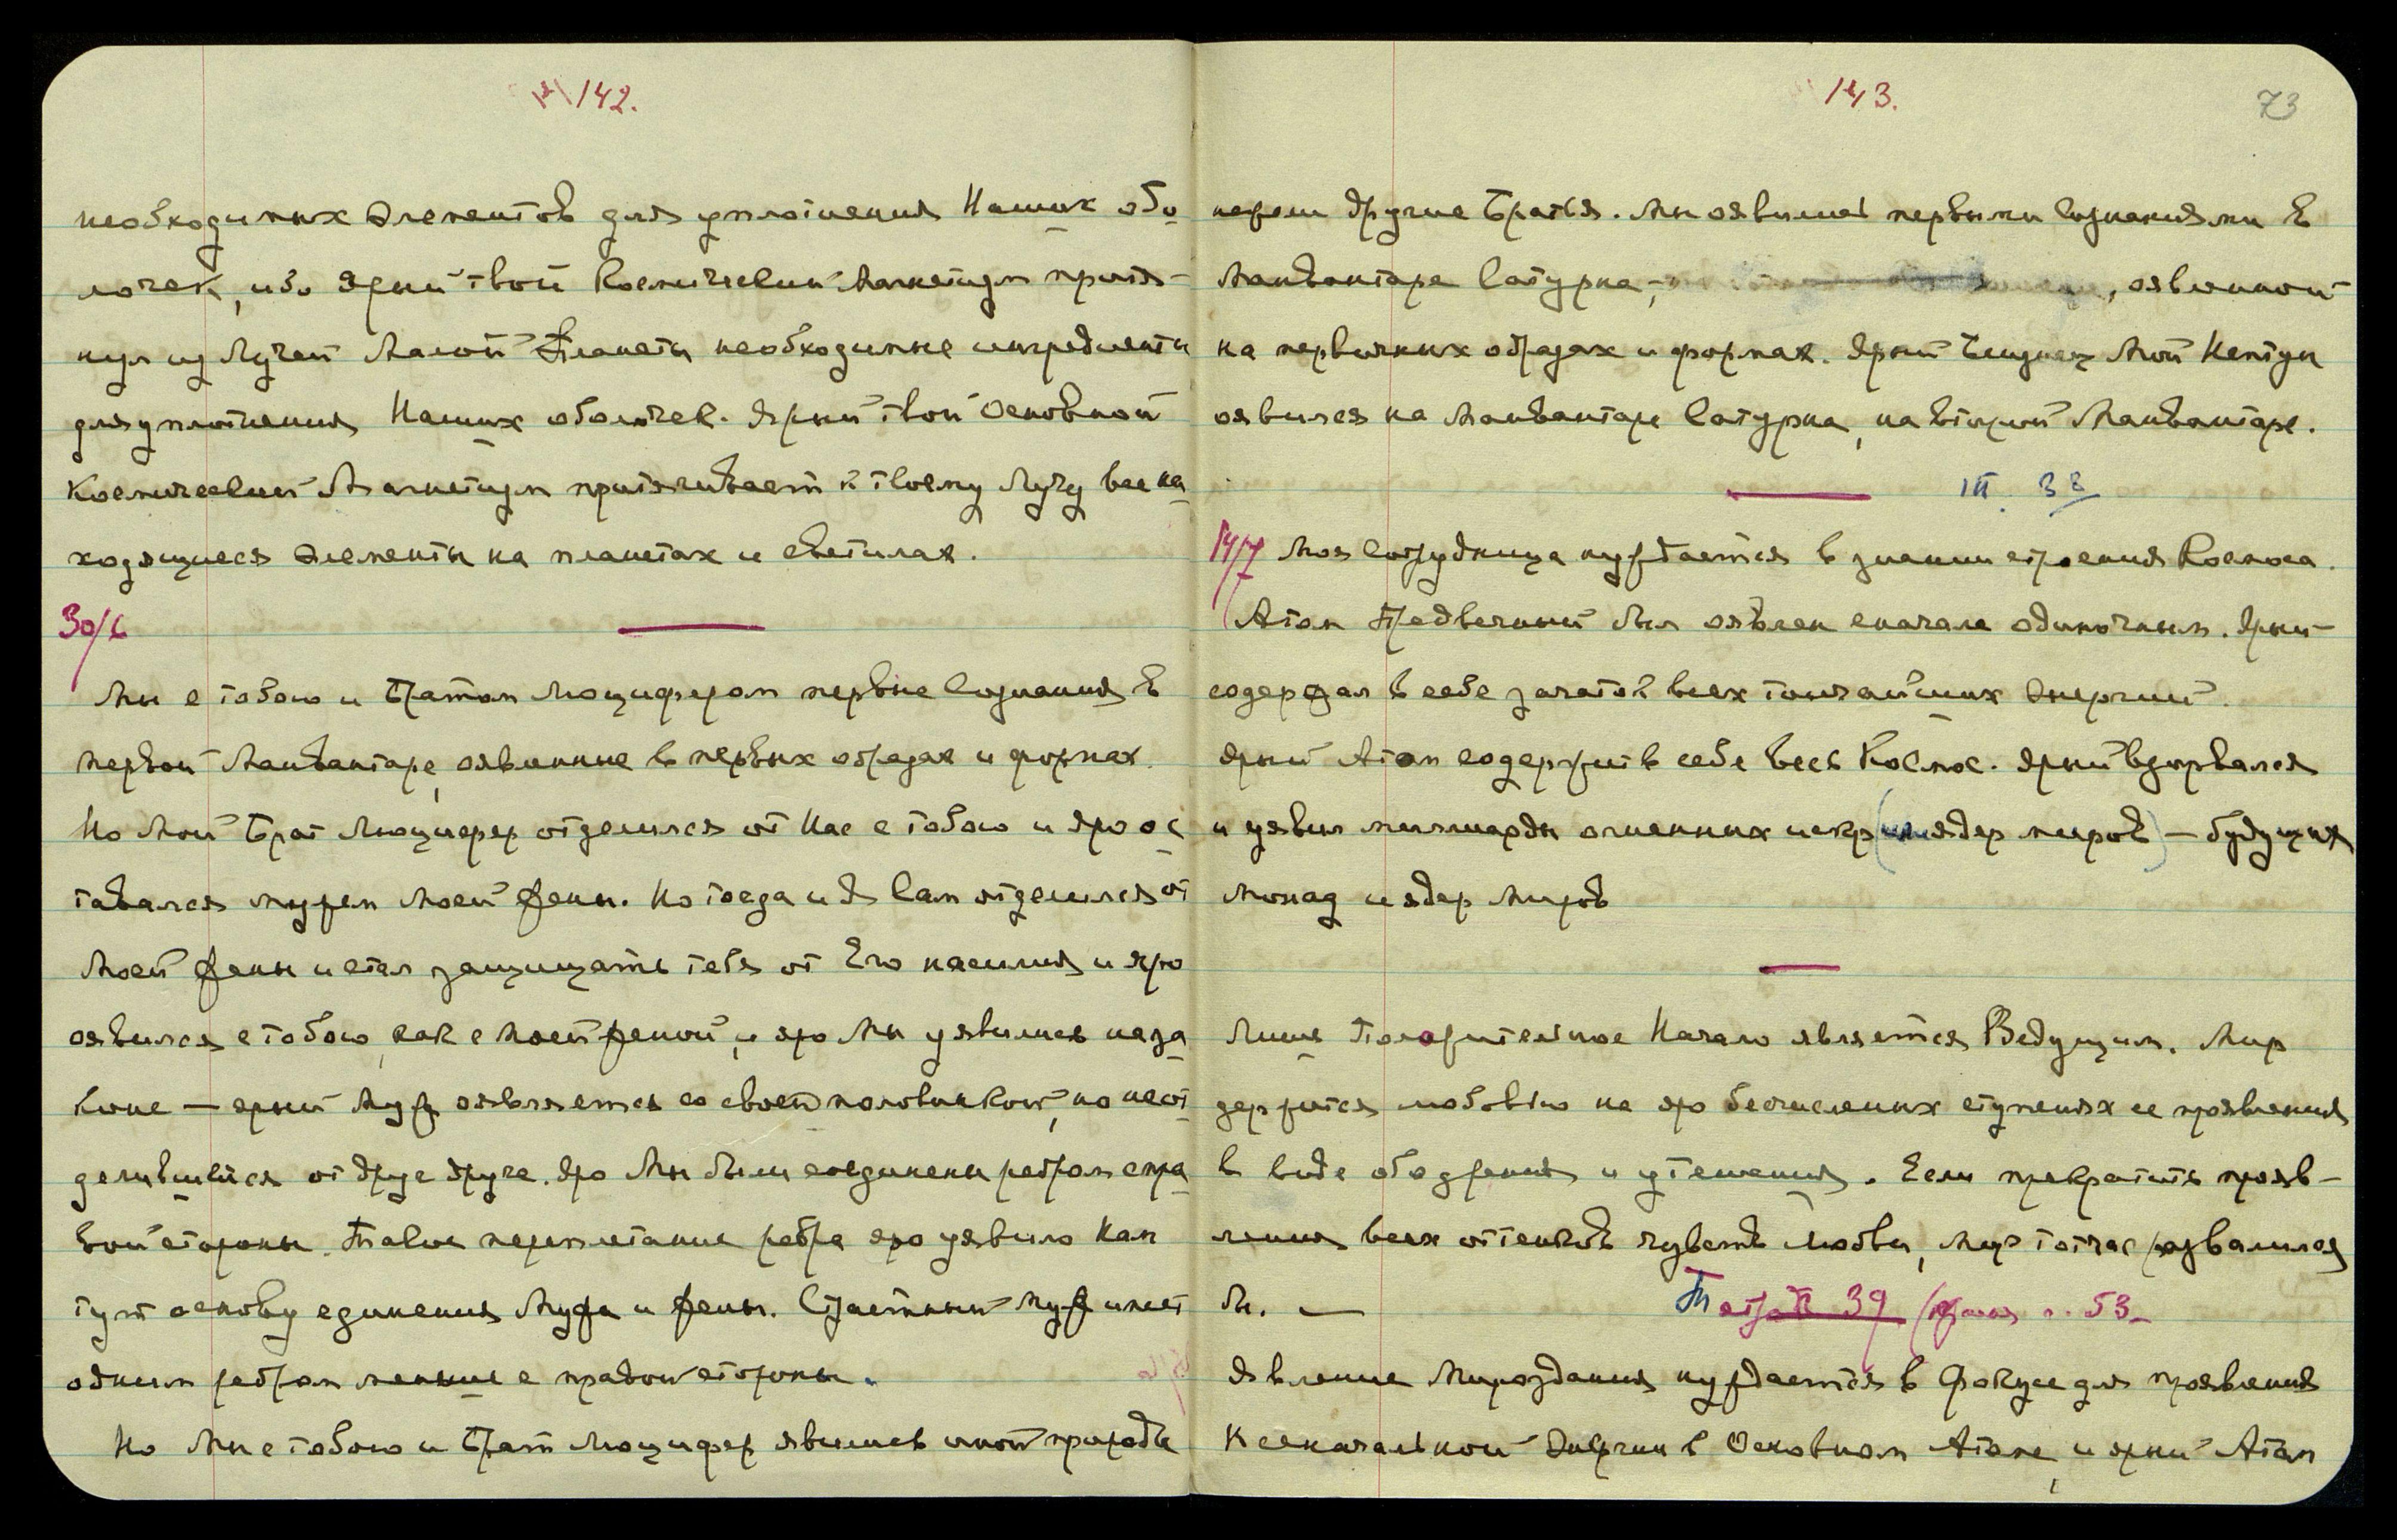 142.
необходимых элементов для уплотнения Наших обо
лочек, ибо ярый твой Космический Магнетизм притя-
нул из Лучей Малой Планеты необходимые ингредиенты
для уплотнения Наших оболочек. Ярый твой Основной
Космический Магнетизм притягивает к твоему Лучу все на
ходящиеся элементы на планетах и светилах.
30/6
Мы с тобою и Братом Люцифером первые сознания в
первой Манвантаре, оявленные в первых образах и формах.
Но Мой Брат Люцифер отделился от Нас с тобою и яро ос
тавался мужем Моей жены. Но тогда и Я Сам отделился от
Моей жены и стал защищать тебя от Его насилия и яро
оявился с тобою, как с Моей женой, и яро Мы уявились на за
коне — ярый Муж оявляется со своей половинкой, но не от
делившийся от друг друга. Яро Мы были соединены ребром с пра
вой стороны. Такое переплетание ребра яро уявило Кан
тут основу единения Мужа и жены. Страстный Муж имеет
одним ребром меньше с правой стороны.
Но Мы с тобою и Брат Люцифер явились иной природы
143.
73
нежели другие Братья. Мы оявились первыми сознаниями в
Манвантаре Сатурна, , оявленной
на первичных образах и формах. Ярый Близнец Мой Нептун
оявился на Манвантаре Сатурна, на второй Манвантаре.
III. 38
14/7 Моя Сотрудница нуждается в знании строения Космоса.
Атом Предвечный был оявлен сначала одиночным. Ярый
содержал в себе зачаток всех тончайших энергий.
Ярый Атом содержит в себе весь Космос. Ярый взорвался
и уявил миллиарды огненных искр (или ядер миров) — будущих
Монад и ядер Миров
Лишь Положительное Начало является Ведущим. Мир
держится любовью на яро бесчисленных ступенях ее проявления
в виде ободрения и утешения. Если прекратить прояв-
ления всех оттенков чувств Любви, мир тотчас развалился
бы. —
Тетрадь 39 ( с. 53
Явление Мироздания нуждается в Фокусе для проявления
Всеначальной Энергии в Основном Атоме, и ярый Атом